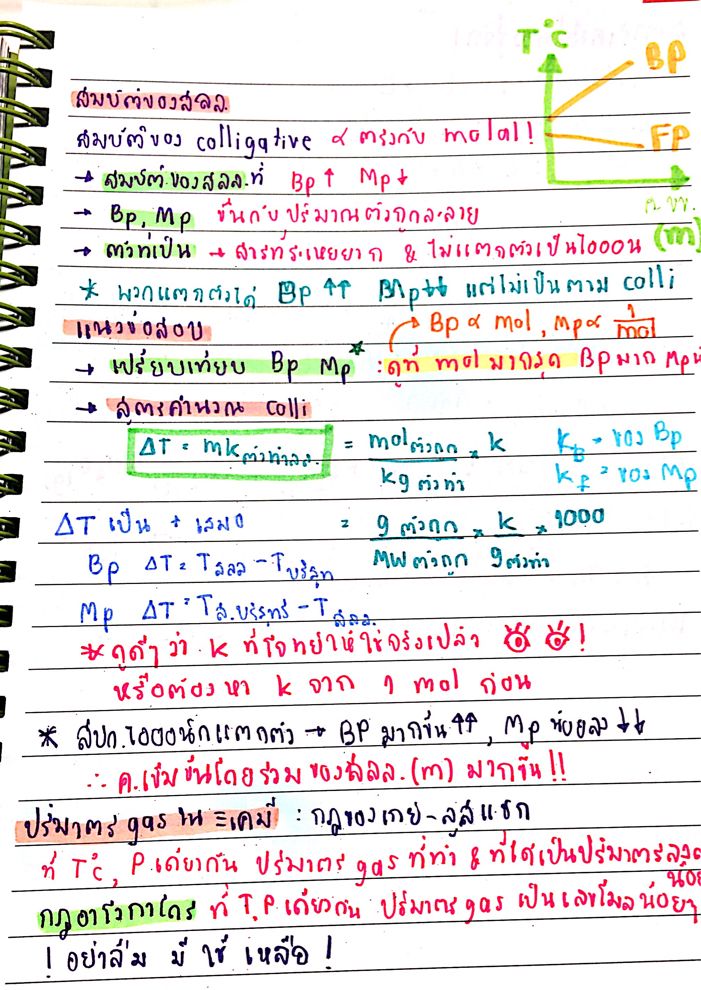 T°C
BP
FP
ค. ขข.
(m)
สมบัติของสลล.
สมบัติของ colligative ∝ ตรงกับ molal!
→ สมบัติของสลล.ที่ Bp↑ Mp↓
→ Bp, Mp ขึ้นกับปริมาณตัวถูกละลาย
→ ตัวที่เป็น → สารที่ระเหยยาก & ไม่แตกตัวเป็นไอออน
* พวกแตกตัวได้ Bp↑↑ Mp↓↓ แต่ไม่เป็นตาม colli
แนวข้อสอบ
Bp ∝ mol, Mp ∝ 1/mol
→ เปรียบเทียบ Bp Mp* : ดูที่ mol มากสุด Bp มาก Mp
→ สูตรคำนวณ colli
ΔT = mk ตัวทำลล. = mol ตัวถูก / kg ตัวทำ × k
k_B = ของ Bp
k_f = ของ Mp
ΔT เป็น + เสมอ = g ตัวถูก / MW ตัวถูก × k / g ตัวทำ × 1000
Bp ΔT = T สลล - T บริสุท
Mp ΔT = T ส.บริสุทธิ์ - T สลล.
* ดูดีๆ ว่า k ที่โจทย์ให้ใช้จริงเปล่า !
หรือต้องหา k จาก 1 mol ก่อน
* สปก.ไอออนิกแตกตัว → BP มากขึ้น↑↑, Mp น้อยลง↓↓
∴ ค.เข้มข้นโดยรวมของสลล.(m) มากขึ้น!!
ปริมาตร gas ใน ≡เคมี : กฎของเกย์-ลูสแซก
ที่ T°C, P เดียวกัน ปริมาตร gas ที่ทำ & ที่ได้เป็นปริมาตรลงตัว
น้อย
กฎอาโวกาโดร ที่ T,P เดียวกัน ปริมาตร gas เป็นเลขโมลน้อยๆ
! อย่าลืม มี ใช้ เหลือ !